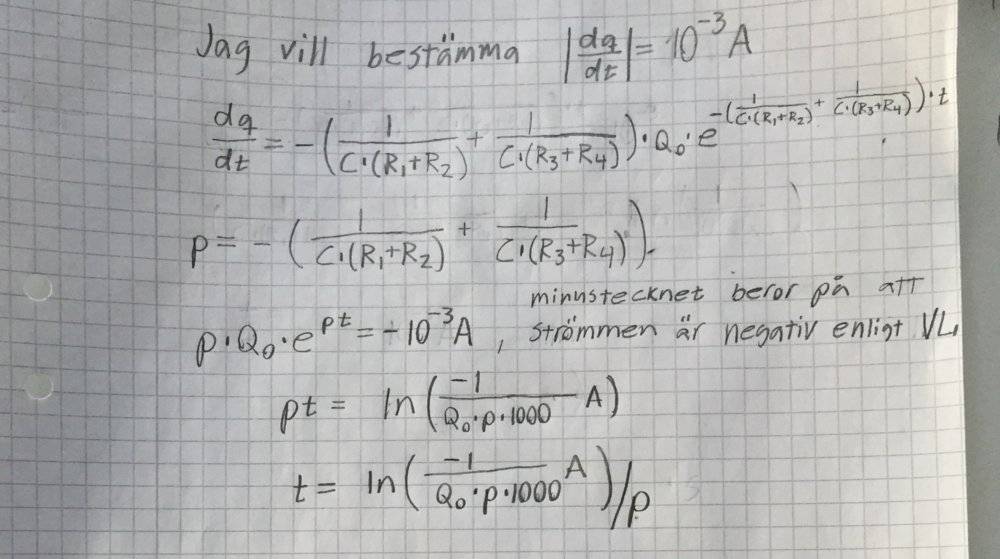 Jag vill bestämma |dq/dt| = 10⁻³ A
dq/dt = -(1/(C·(R₁+R₂)) + 1/(C·(R₃+R₄)))·Q₀·e^(-(1/(C·(R₁+R₂)) + 1/(C·(R₃+R₄)))·t)
p = -(1/(C·(R₁+R₂)) + 1/(C·(R₃+R₄))).
minustecknet beror på att
p·Q₀·e^(pt) = -10⁻³ A, strömmen är negativ enligt VL
pt = ln(-1/(Q₀·p·1000) A)
t = ln(-1/(Q₀·p·1000) A)/p